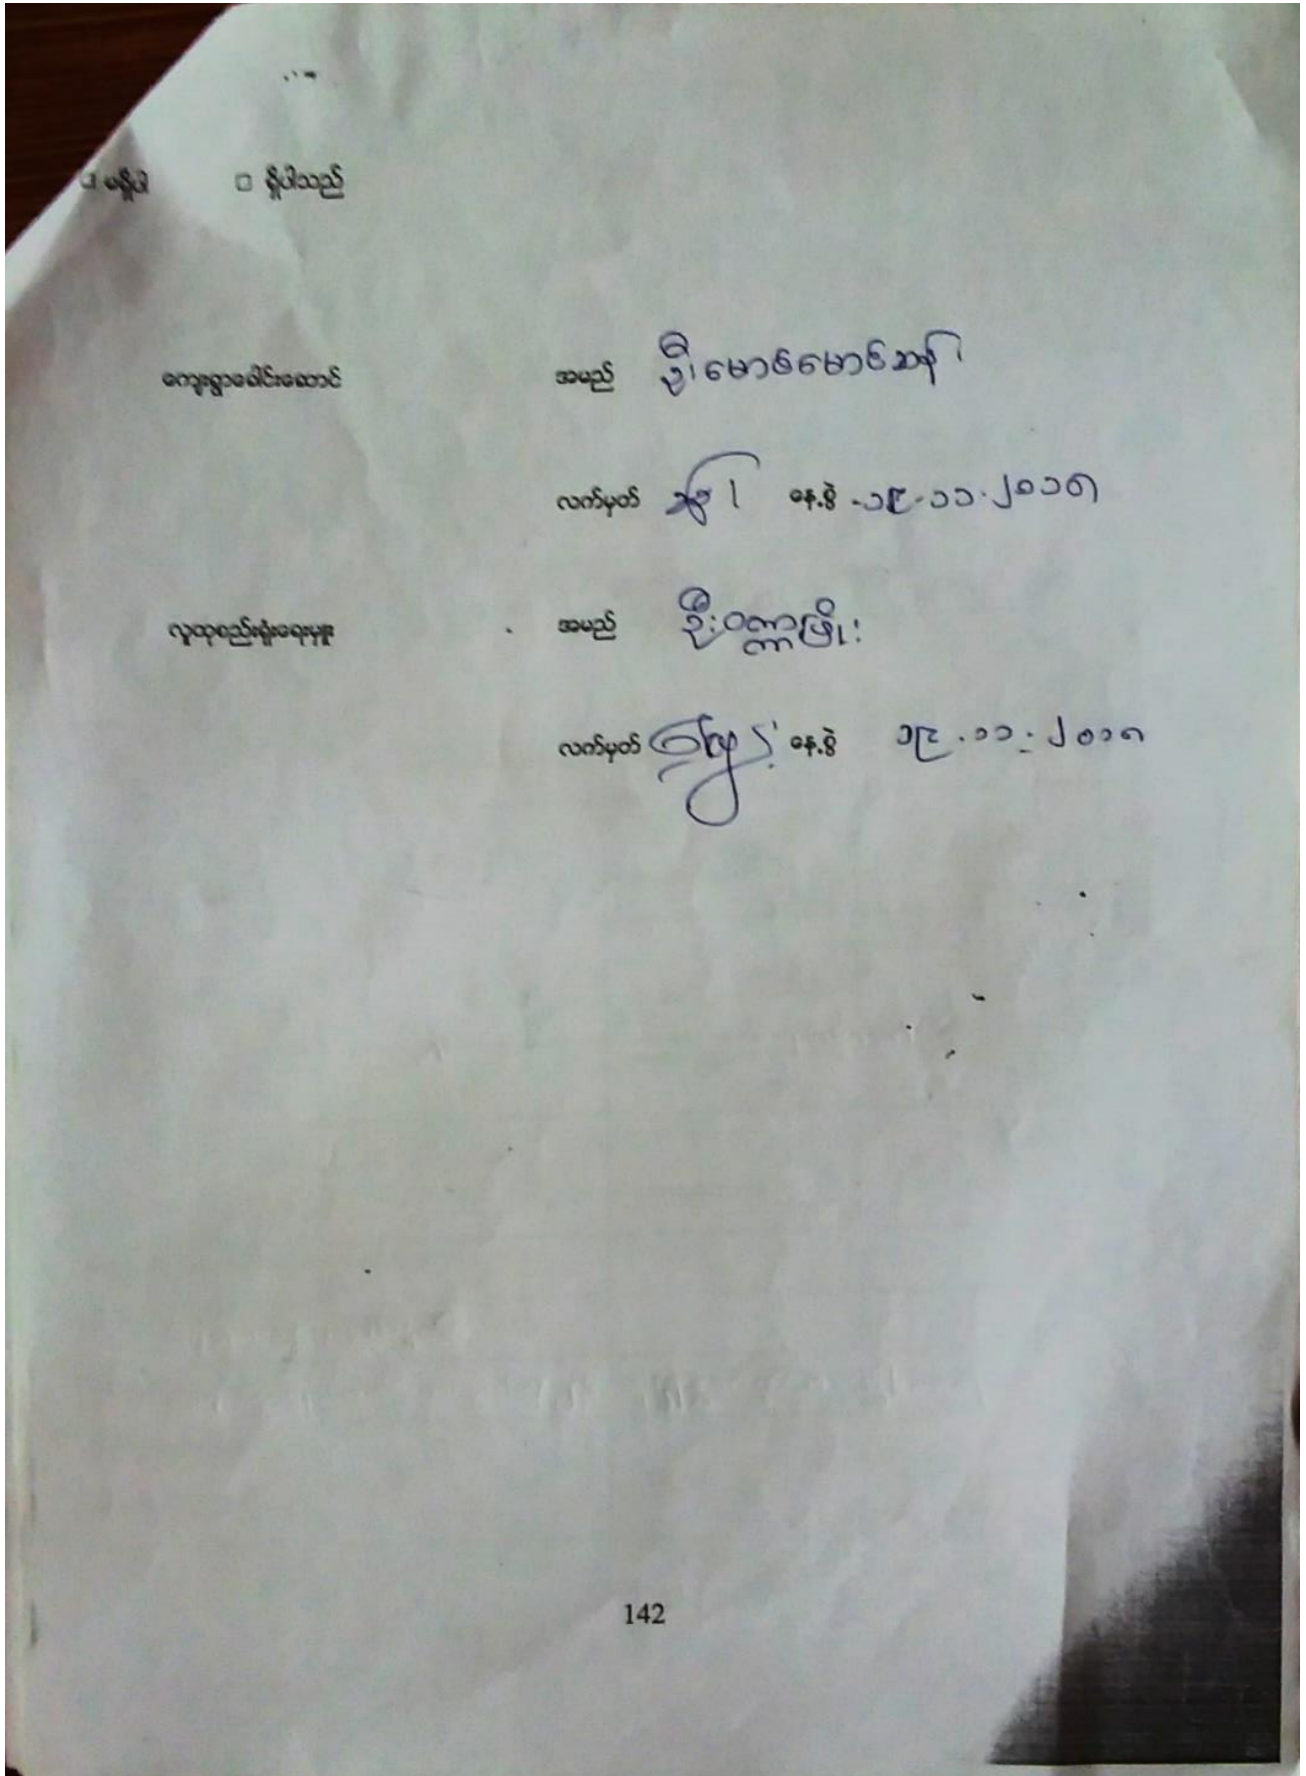 □ မရှိပါ □ ရှိပါသည်
ကျေးရွာခေါင်းဆောင် အမည် ဦးမောင်မောင်ဆန်း
လက်မှတ် နေ့စွဲ ၁၉-၁၁-၂၀၁၅
လူထုစည်းရုံးရေးမှူး အမည် ဦးဝဏ္ဏဖြိုး
လက်မှတ် နေ့စွဲ ၁၉.၁၁.၂၀၁၅
142